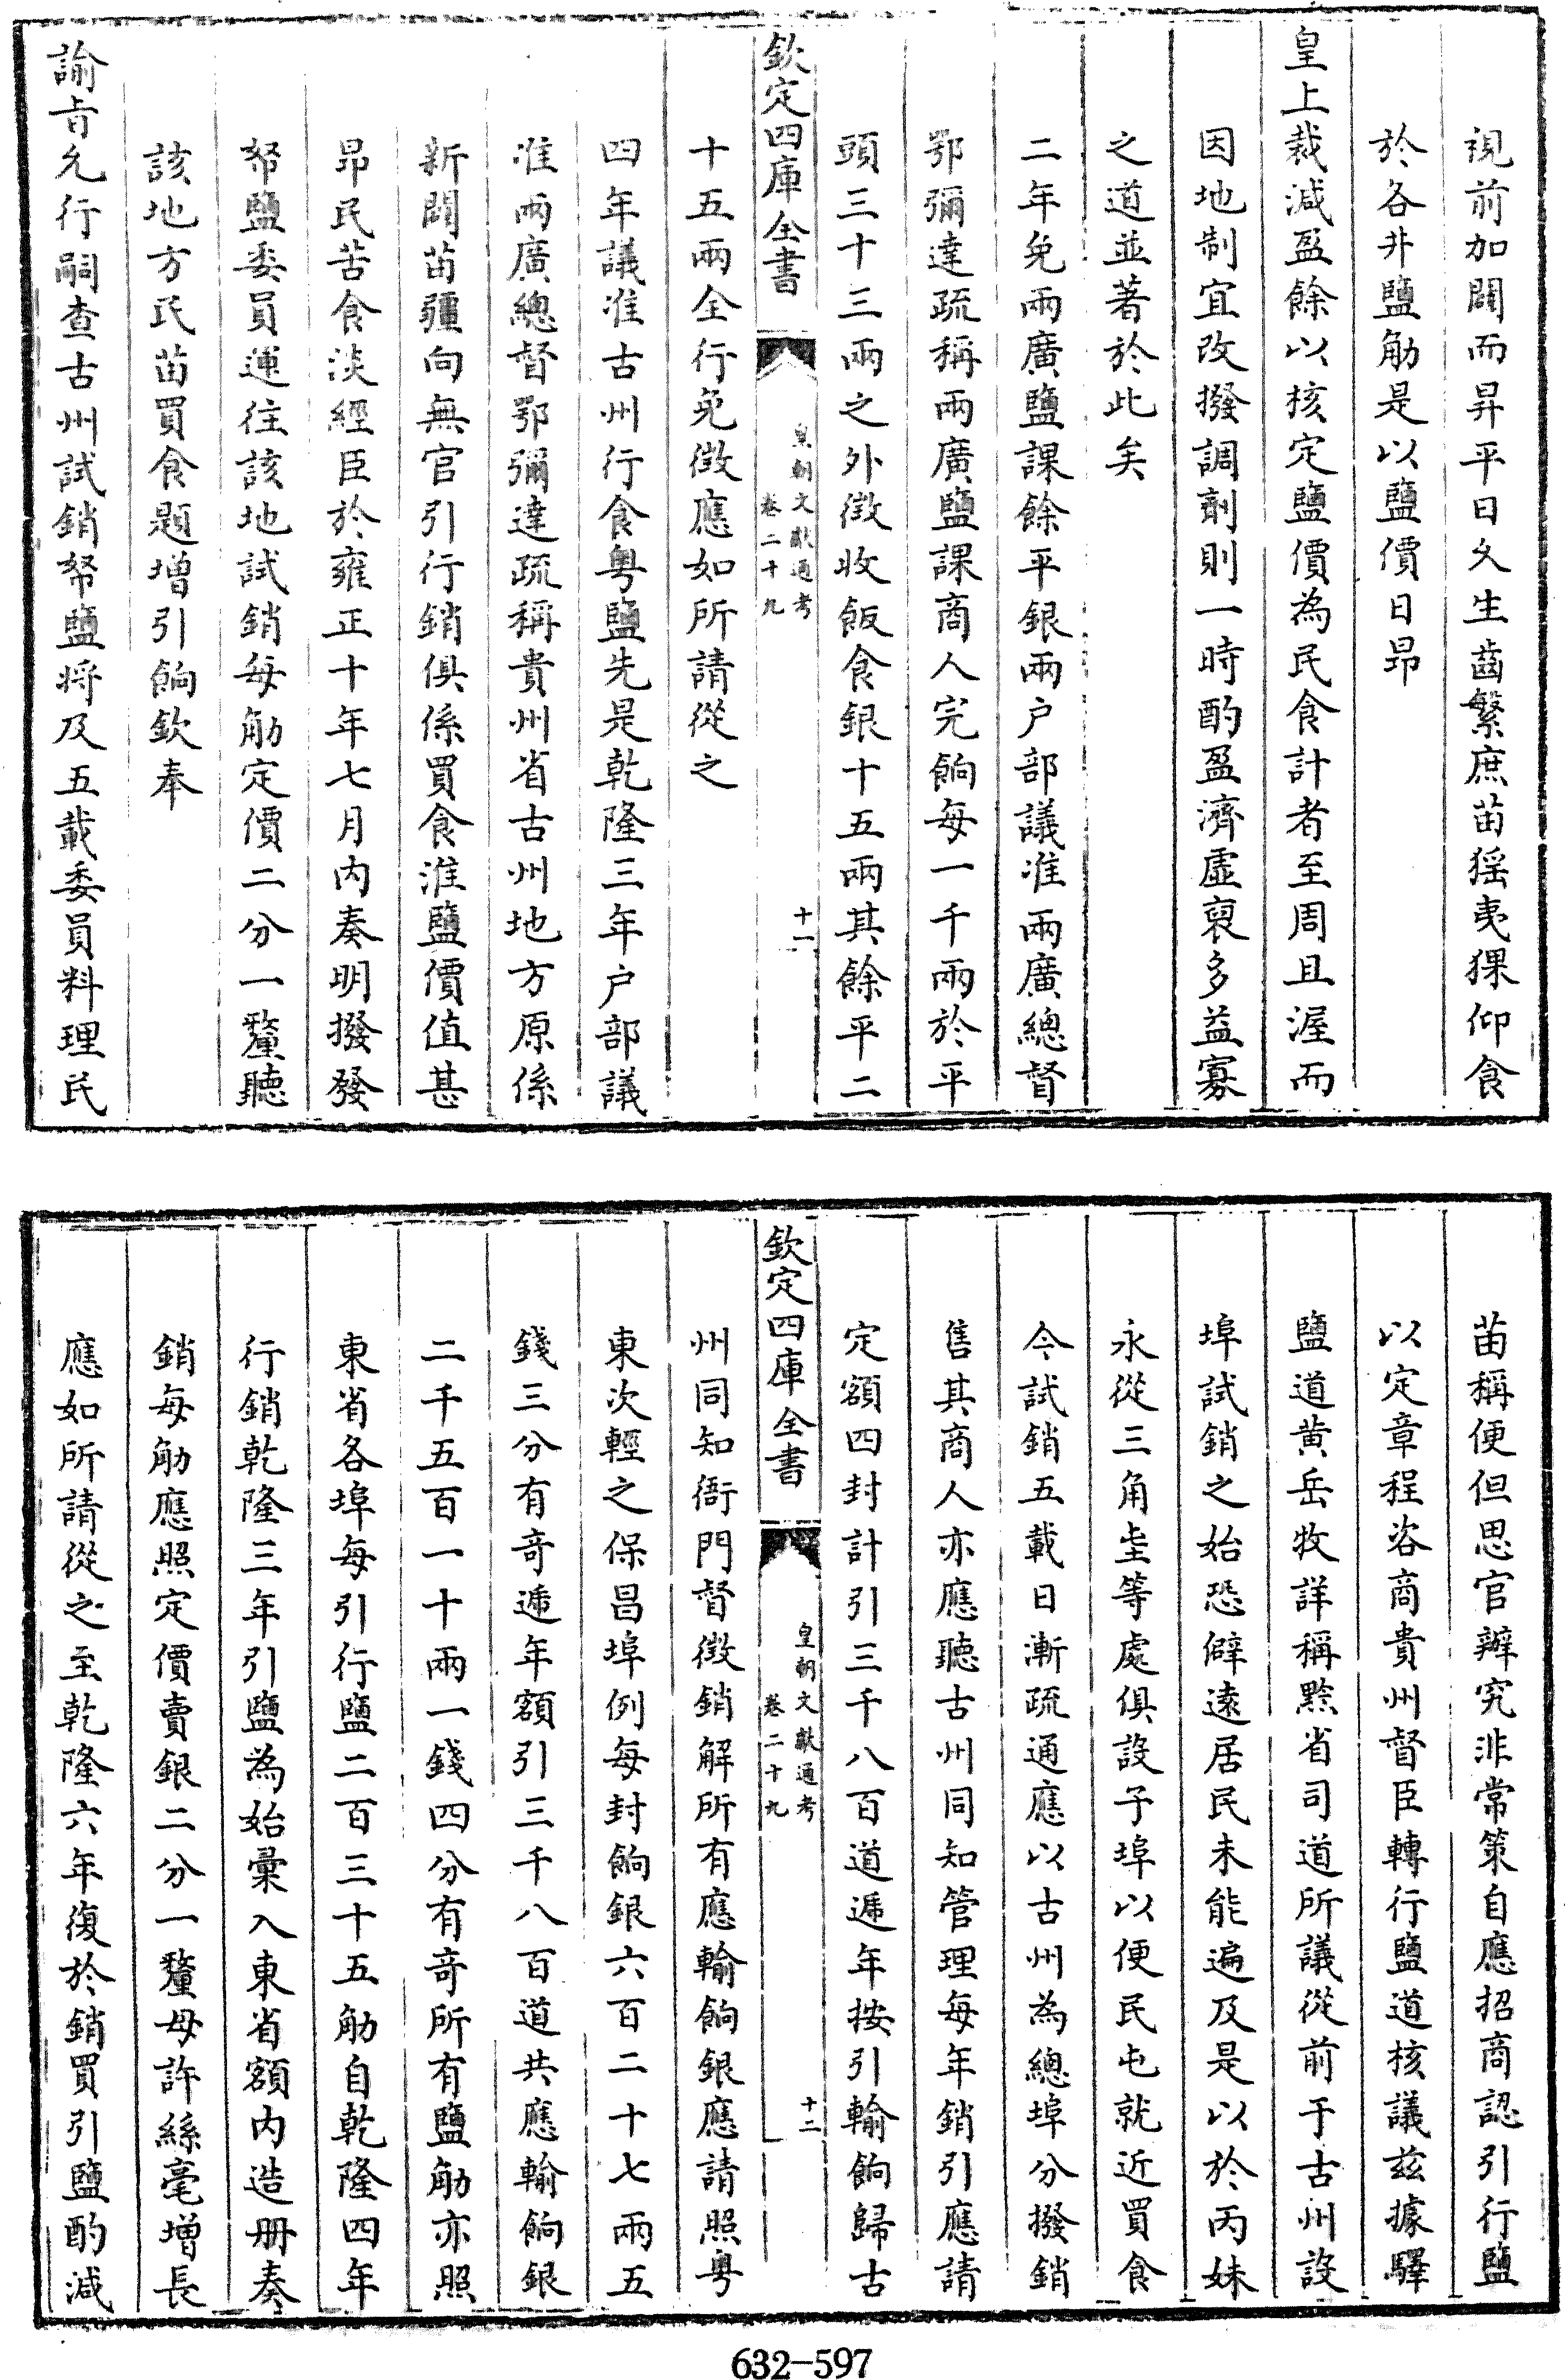 視前加闢而昇平日久生齒繁庶苗猺夷猓仰食
於各井鹽觔是以鹽價日昂
皇上裁減盈餘以核定鹽價為民食計者至周且渥而
因地制宜改撥調劑則一時酌盈濟虛裒多益寡
之道並著於此矣
二年免兩廣鹽課餘平銀兩户部議准兩廣總督
鄂彌達疏稱兩廣鹽課商人完餉每一千兩於平
頭三十三兩之外徵收飯食銀十五兩其餘平二
欽定四庫全書
皇朝文獻通考
卷二十九
十一
十五兩全行免徵應如所請從之
四年議准古州行食粵鹽先是乾隆三年户部議
准兩廣總督鄂彌達疏稱貴州省古州地方原係
新闢苗疆向無官引行銷俱係買食淮鹽價值甚
昂民苦食淡經臣於雍正十年七月内奏明撥發
帑鹽委員運往該地試銷每觔定價二分一釐聽
該地方民苗買食題增引餉欽奉
諭旨允行嗣查古州試銷帑鹽将及五載委員料理民
苗稱便但思官辦究非常策自應招商認引行鹽
以定章程咨商貴州督臣轉行鹽道核議兹據驛
鹽道黄岳牧詳稱黔省司道所議從前于古州設
埠試銷之始恐僻遠居民未能遍及是以於丙妹
永從三角坣等處俱設子埠以便民屯就近買食
今試銷五載日漸疏通應以古州為總埠分撥銷
售其商人亦應聽古州同知管理每年銷引應請
定額四封計引三千八百道遞年按引輸餉歸古
欽定四庫全書
皇朝文獻通考
卷二十九
十二
州同知衙門督徵銷解所有應輸餉銀應請照粵
東次輕之保昌埠例每封餉銀六百二十七兩五
錢三分有奇遞年額引三千八百道共應輸餉銀
二千五百一十兩一錢四分有奇所有鹽觔亦照
東省各埠每引行鹽二百三十五觔自乾隆四年
行銷乾隆三年引鹽為始彙入東省額内造册奏
銷每觔應照定價賣銀二分一釐毋許絲毫增長
應如所請從之至乾隆六年復於銷買引鹽酌減
632-597